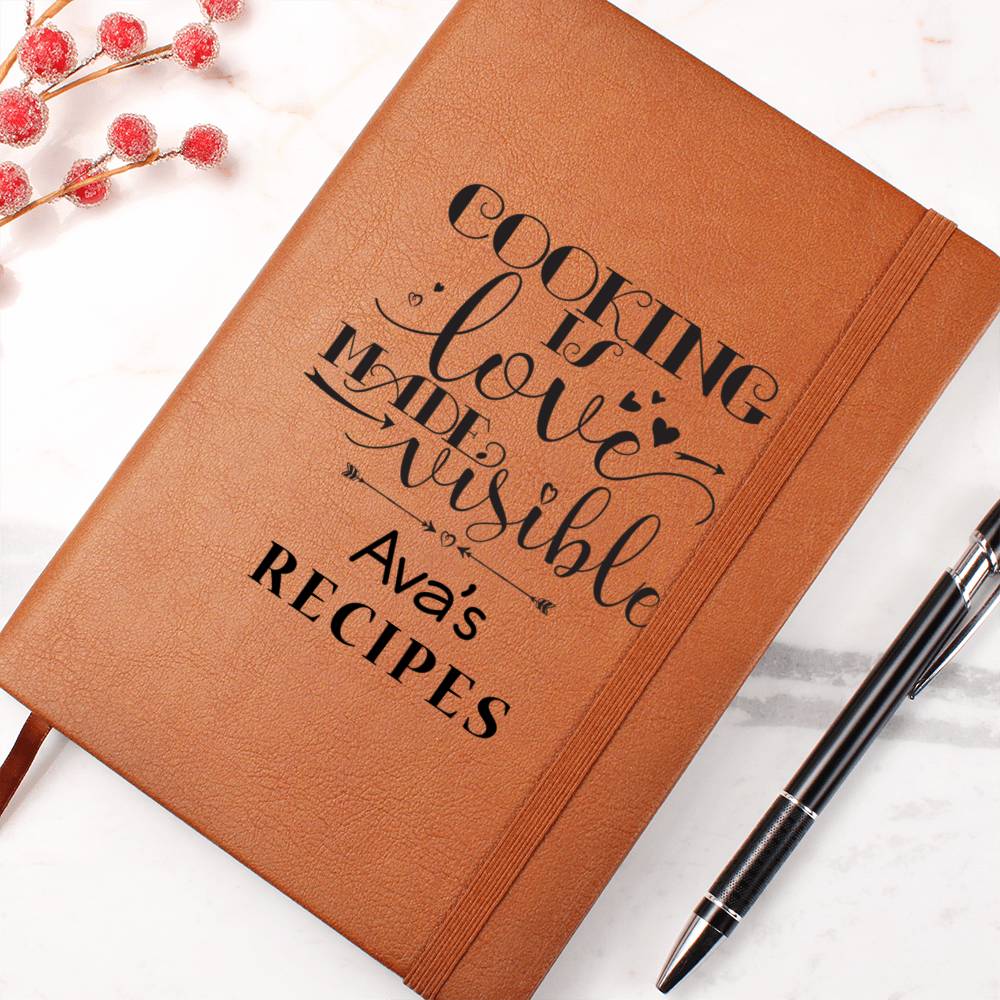 COOKING
IS
love
MADE
visible
Ava's
RECIPES